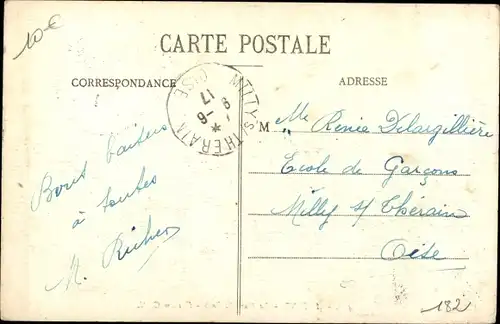 10€
CARTE POSTALE
CORRESPONDANCE
ADRESSE
MILLY-S-THERAIN
OISE
Bons baisers
à toutes
M. Richer
M
Renée Delargillière
Ecole de Garçons
Milly s/ Thérain
Oise
182